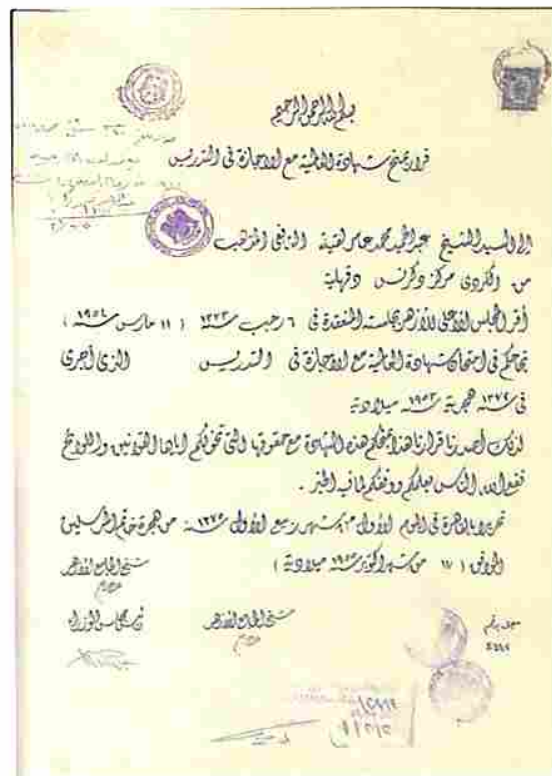 بسم الله الرحمن الرحيم
قرار بمنح شهادة العالمية مع الاجازة فى التدريس
إلى السيد الشيخ عبد الحميد محمد عامر لقية الشافعى المذهب
من الكردى مركز دكرنس دقهلية
أقر المجلس الأعلى للأزهر بجلسته المنعقدة فى ٦ رجب سنة ١٣٧٣ ( ١١ مارس سنة ١٩٥٤ )
نجاحكم فى امتحان شهادة العالمية مع الاجازة فى التدريس الذى أجرى
فى سنة ١٣٧٢ هجرية سنة ١٩٥٣ ميلادية
لذلك أصدرنا قرارنا هذا بمنحكم هذه الشهادة مع حقوقها التى تخولكم اياها القوانين واللوائح
نفع الله الناس بعلمكم ووفقكم لما فيه الخير .
تحريرا بالقاهرة فى اليوم الأول من شهر ربيع الأول سنة ١٣٧٥ من هجرة خاتم المرسلين
الموافق ( ١٧ من شهر اكتوبر سنة ١٩٥٥ ميلادية )
شيخ الجامع الأزهر
رئيس مجلس الوزراء
شيخ الجامع الأزهر
سجل برقم